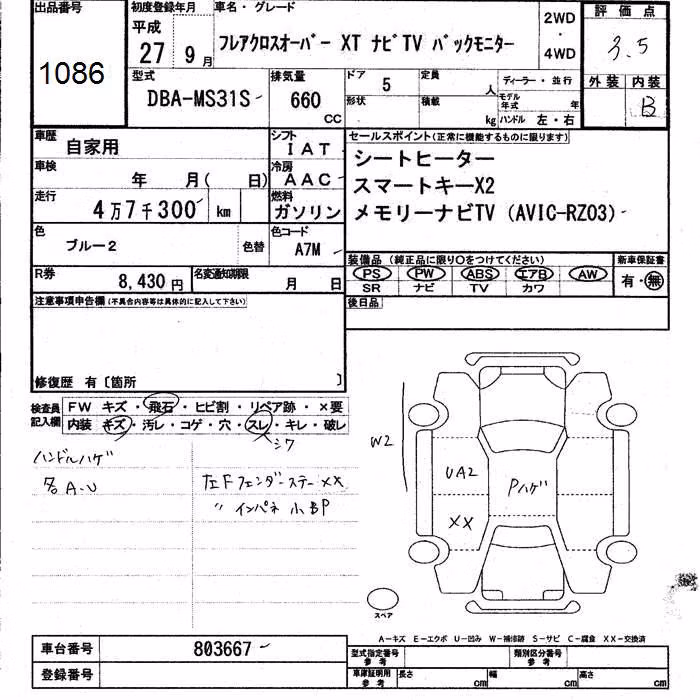 出品番号
1086
初度登録年月
平成
27 9 月
車名・グレード
フレアクロスオーバー XT ナビTV バックモニター
2WD
・
4WD
評価点
3.5
外装 内装
B
型式
DBA-MS31S
排気量
660
CC
ドア
5
形状
定員
人
積載
kg
ディーラー・並行
モデル年式
年
ハンドル 左・右
車歴
自家用
シフト
IAT
車検
年 月( 日)
冷房
AAC
走行
4万7千300 km
燃料
ガソリン
色
ブルー2
色替
色コード
A7M
R券
8,430円
名変通知期限
月 日
セールスポイント(正常に機能するものに限ります)
シートヒーター
スマートキーX2
メモリーナビTV (AVIC-RZ03)
装備品 (純正品に限り○をつけてください)
新車保証書
PS PW ABS エアB AW
有・無
SR ナビ TV カワ
後日品
注意事項申告欄 (不具合内容等は具体的に記入して下さい)
修復歴 有〔箇所 〕
検査員記入欄
FW キズ・飛石・ヒビ割・リペア跡・×要
内装 キズ・汚レ・コゲ・穴・スレ・キレ・破レ
シワ
ハンドルハゲ
各A-U
左Fフェンダーステー××
〃 インパネ 小BP
W2
UA2
××
Pハゲ
スペア
A-キズ E-エクボ U-凹み W-補修跡 S-サビ C-腐食 XX-交換済
車台番号
803667
登録番号
型式指定番号
参考
類別区分番号
参考
車庫証明用
参考
長さ
cm
幅
cm
高さ
cm